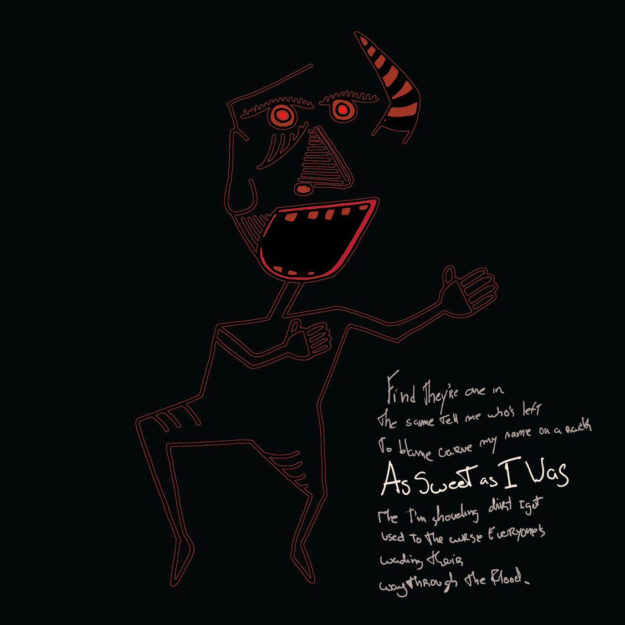 Find They're one in
the same Tell me who's left
To blame carve my name on a rack
As Sweet as I Was
Me I'm shoveling dirt I got
used To the curse Everyone's
wading their
way through The Flood.